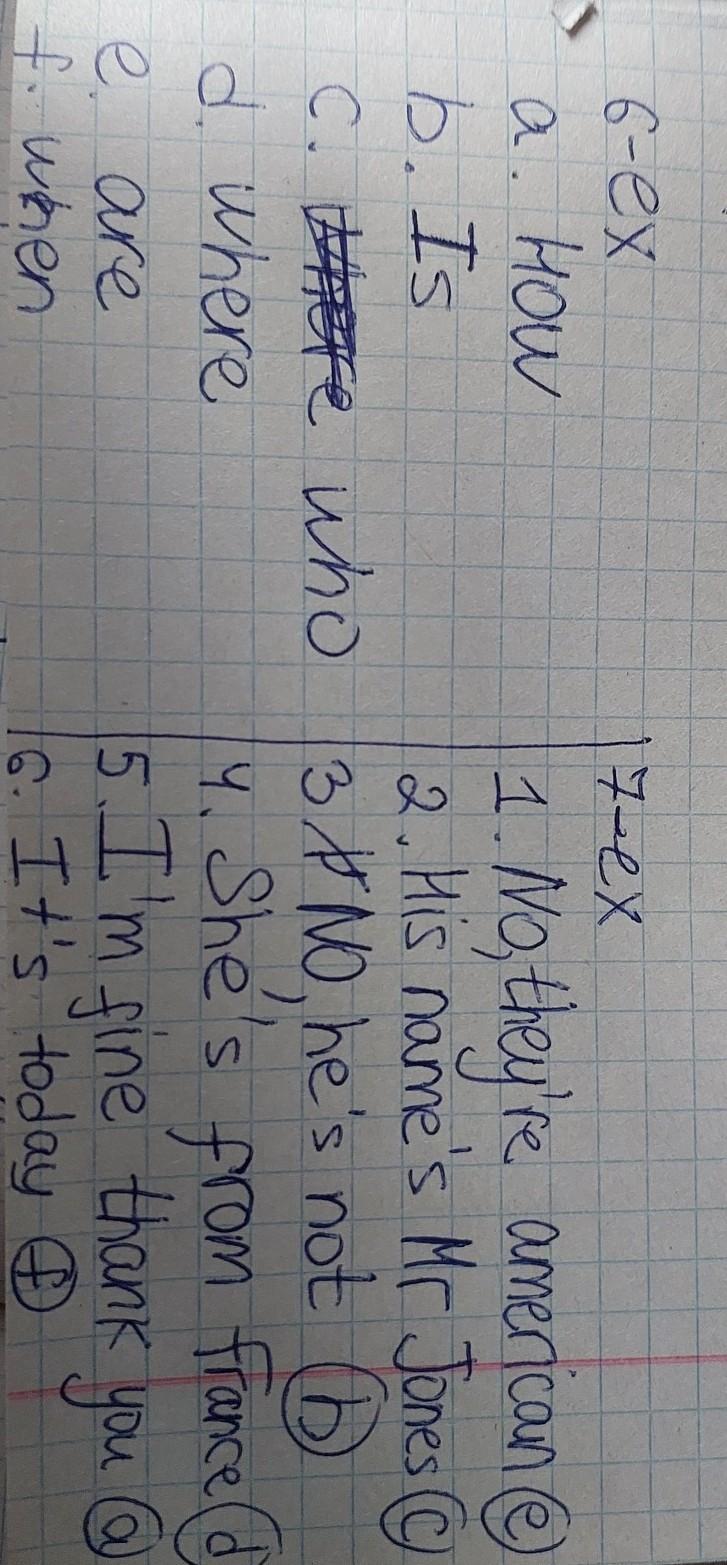 6-ex
a. How
b. Is
c. who
d. where
e. are
f. when
7-ex
1. No, they're american e
2. His name's Mr Jones c
3 No, he's not b
4. She's from france d
5. I'm fine thank you a
6. It's today f